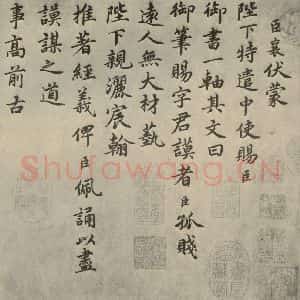 臣襄伏蒙
陛下特遣中使賜臣
御書一軸其文曰
御筆賜字君謨者臣孤賤
遠人無大材藝
陛下親灑宸翰
推著經義俾臣佩誦以盡
謨謀之道
事高前古
Shufawang.CN